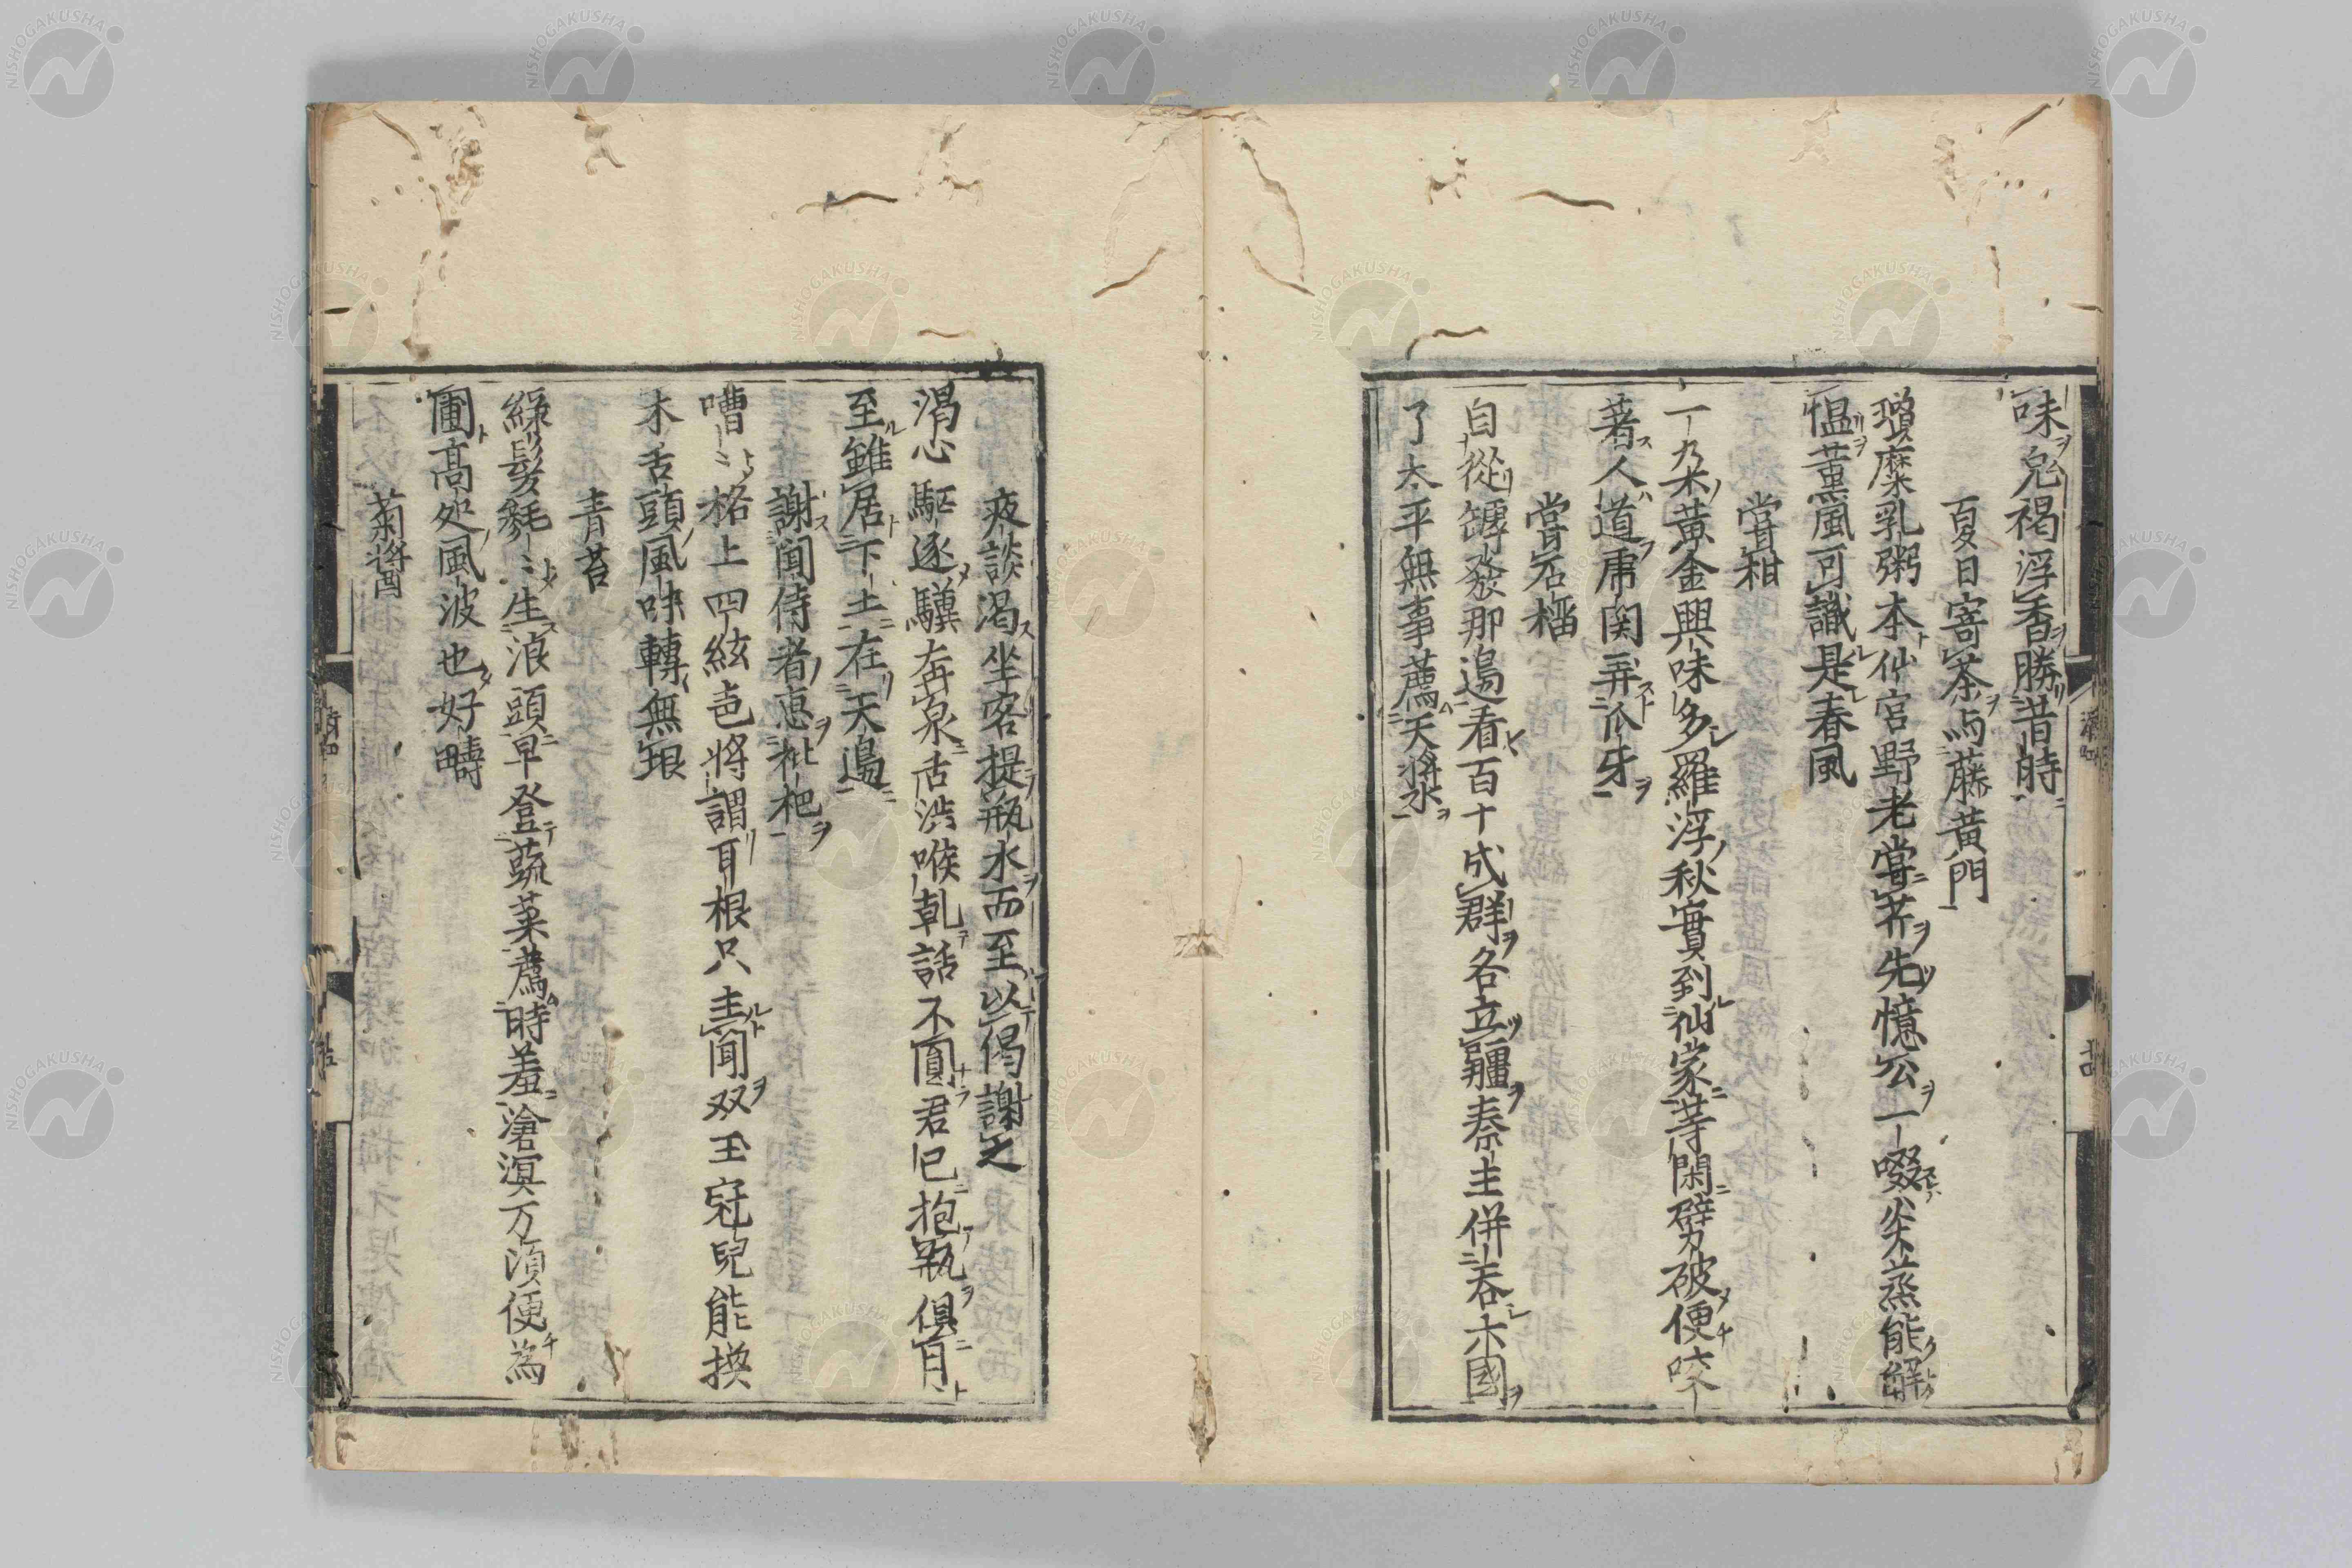 味兒褐浮香勝昔時
夏日寄茶与藤黄門
瓊糜乳粥本仙宮野老嘗芥先憶公一啜炎蒸能解
愠薫風可識是春風
嘗柑
一朶黄金興味多羅浮秋實到仙家等閑劈破便咬
著人道席関弄爪牙
嘗石榴
自從罅發那邉看百十成群各立疆秦主併吞六國
了太平無事薦天漿
夜談渇坐客提瓶水而至以偈謝之
渇心駆逐驥奔泉舌渋喉乹話不圓君已抱瓶倶自
至雖居下土在天邉
謝聞侍者恵枇杷
嘈〻格上四絃邑將謂耳根只圭聞双玉冠兒能換
木舌頭風味轉無垠
青苔
緑髪毿〻生浪頭早登蔬菜薦時羞滄溟万湏便為
圃髙処風波也好疇
菊醬